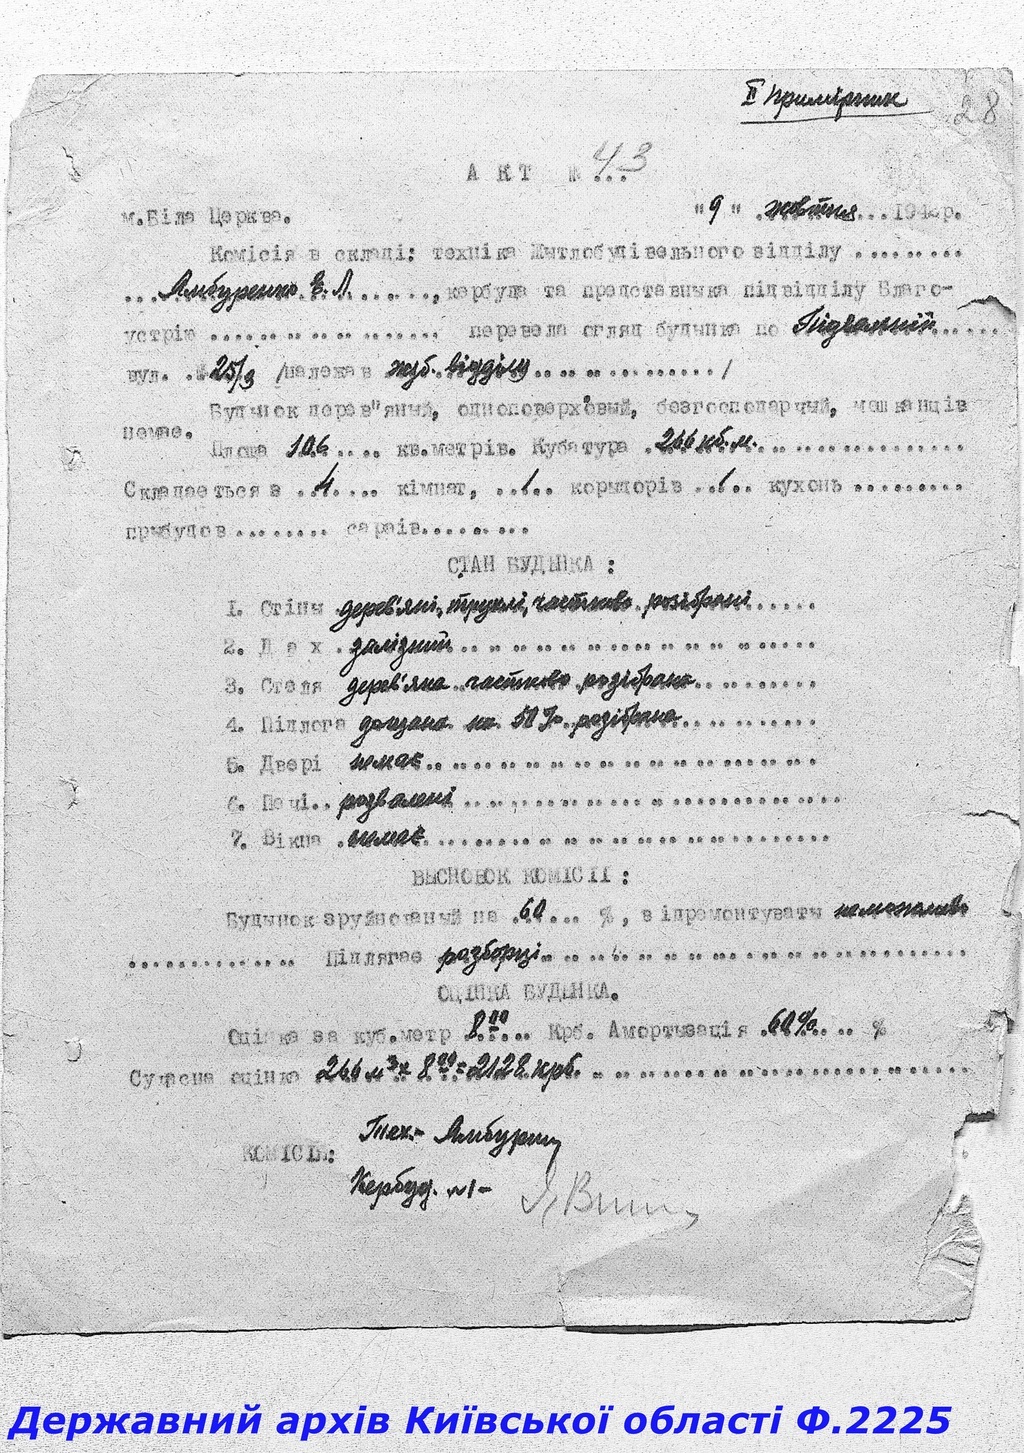 ІІ Примірник
28
АКТ № 43
м.Біла Церква. "9" жовтня 1942р.
Комісія в складі: техніка Житлобудівельного відділу .........
... Амбуренко Є. Л. ......, кербуда та представника підвідділу Благо-
устрію .................. перевела огляд будынка по Підвальній .....
вул. № 25/9 /належав жуб. відділу ............... /
Будынок дерев"яный, одноповерховый, безгосподарчый, мешканців
немає.
Площа 106 .... кв.метрів. Кубатура 266 кб.м. .................
Складається з ..4.... кімнат, ..1... корыдорів ..1.. кухонь .........
прыбудов ........ сараів.........
СТАН БУДЫНКА :
1. Стіны дерев'яні, трухлі, частково розібрані ......
2. Д а х . залізний .....................
3. Стеля дерев'яна частково розібрана .........
4. Підлога дощана на 50% розібрана .........
5. Двері немає .....................
6. Печі.. розвалені .....................
7. Вікна . немає .....................
ВЫСНОВОК КОМІСІІ :
Будынок зруйнованый на 60 ... %, відремонтуваты неможливо
.............. Підлягає розборці .....................
ОЦІНКА БУДЫНКА.
Оцінка за куб.метр 8.00 ... Крб. Амортызація 60% .... %
Сучасна оцінка 266 м³ x 8.00 = 2128 крб. .....................
Тех.-
КОМІСІЯ:
Кербуд. №1-
Державний архів Київської області Ф.2225